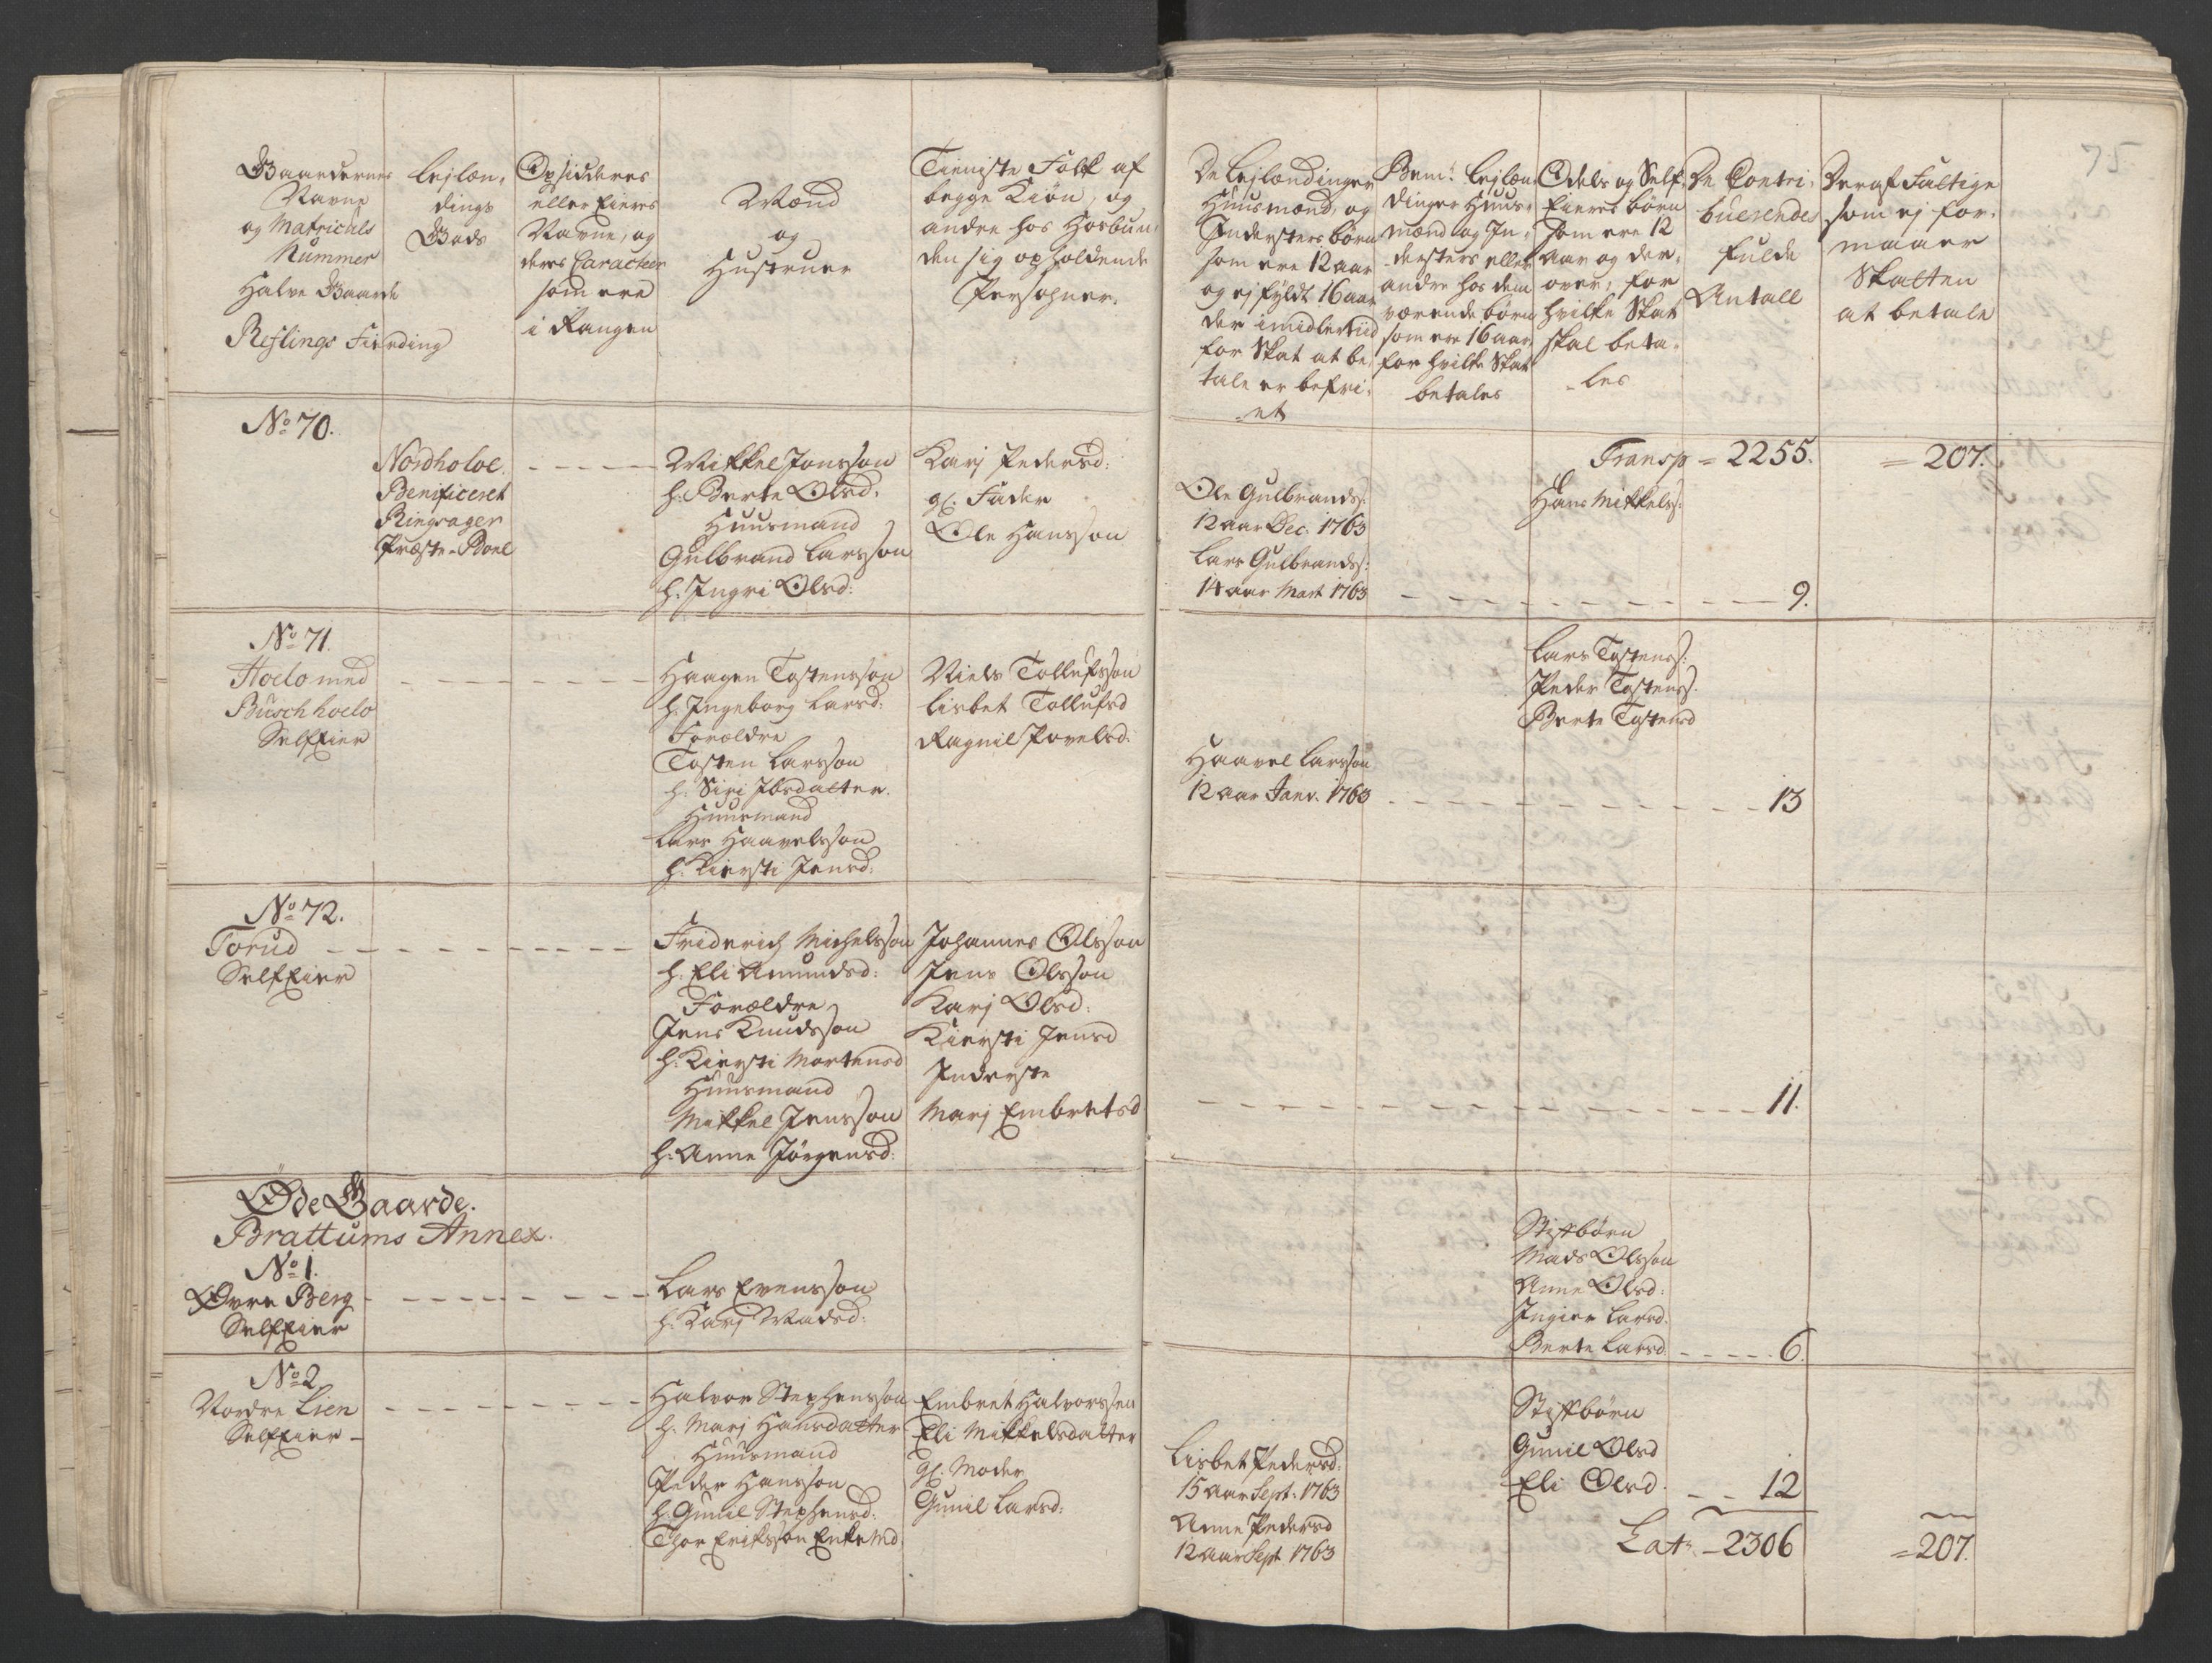 75
Gaardernes
Navne
og Matriculs
Nummer
Halve Gaarde
Reslings Fierding
Lejlæn,
dings
Gods
Opsidderes
eller Eieres
Navne, og
deres Caracteer
som ere
i Rangen
Mænd
og
Hustruer
Tieniste Folk af
begge Kiøn, og
andre hos Hosbun,
den sig opholdende
Persohner.
De Lejlændinger
Huusmænd, og
Indersters børn
som ere 12 aar
og ej fyldt 16 aar
der imidlertiid
for Skat at be,
tale er befri,
-et
Bem: Lejlæn
dinger Huus,
mænd og In,
dersters eller
andre hos dem
værende børn
som ere 16 aar
for hvilke Skat
betales
Odels og Self
Eieres børn
som ere 12
aar og der,
over, for
hvilke Skat
skal beta,
-les
De Contri,
buerendes
fulde
Antall
Deraf Fattige
som ej for,
maaer
Skatten
at betale
Transp = 2255. = 207.
No 70.
Nordholoe.
Benificeret
Ringsager
Præste-Boel
Mikkel Jonsson
h: Berte Olsd:
Huusmand
Gulbrand Larsson
h: Ingri Olsd:
Karj Pedersd:
gl. Fader
Ole Hansson
Ole Gulbrands:
12 aar Dec. 1763
Lars Gulbrands:
14 aar Mart 1763
Hans Mikkels:
9.
No 71.
Hoelo med
Buschhoelo
SelfEier
Haagen Tostensson
h. Ingeborg Larsd:
Forældre
Tosten Larsson
h: Siri Ibsdatter.
Huusmand
Lars Haavelsson
h. Kiersti Jensd:
Niels Tollufsson
Lisbet Tollufsd
Ragnil Povelsd:
Haavel Larsson
12 aar Janv. 1763
Lars Tostens:
Peder Tostens.
Berte Tostensd
13
No 72.
Torud
SelfEier
Friderich Michelsson
h. Eli Amundsd:
Forældre
Jens Knudsson
h: Kiersti Mortensd
Huusmand
Mikkel Jensson
h: Anne Jørgensd:
Johannes Olsson
Jens Olsson
Karj Olsd:
Kiersti Jensd
Inderste
Marj Embretsd
11.
Øde Gaarde.
Brattums Annex.
No 1.
Øvre Berg
SelfEier
Lars Evensson
h: Karj Madsd:
Stifbørn
Mads Olsson
Anne Olsd:
Ingier Larsd.
Berte Larsd.
6.
No 2
Nordre Lien
SelfEier
Halvor Stephensson
h. Marj Hansdatter
Huusmand
Peder Hansson
h: Gunil Stephensd:
Thor Eriksson Enkemd
Embret Halvorssen
Eli Mikkelsdatter
gl. Moder
Gunil Larsd:
Lisbet Pedersd:
15 aar Sept. 1763
Anne Pedersd
12 aar Sept 1763
Stifbørn
Gunil Olsd
Eli Olsd.
12
Lat: -2306 =207.